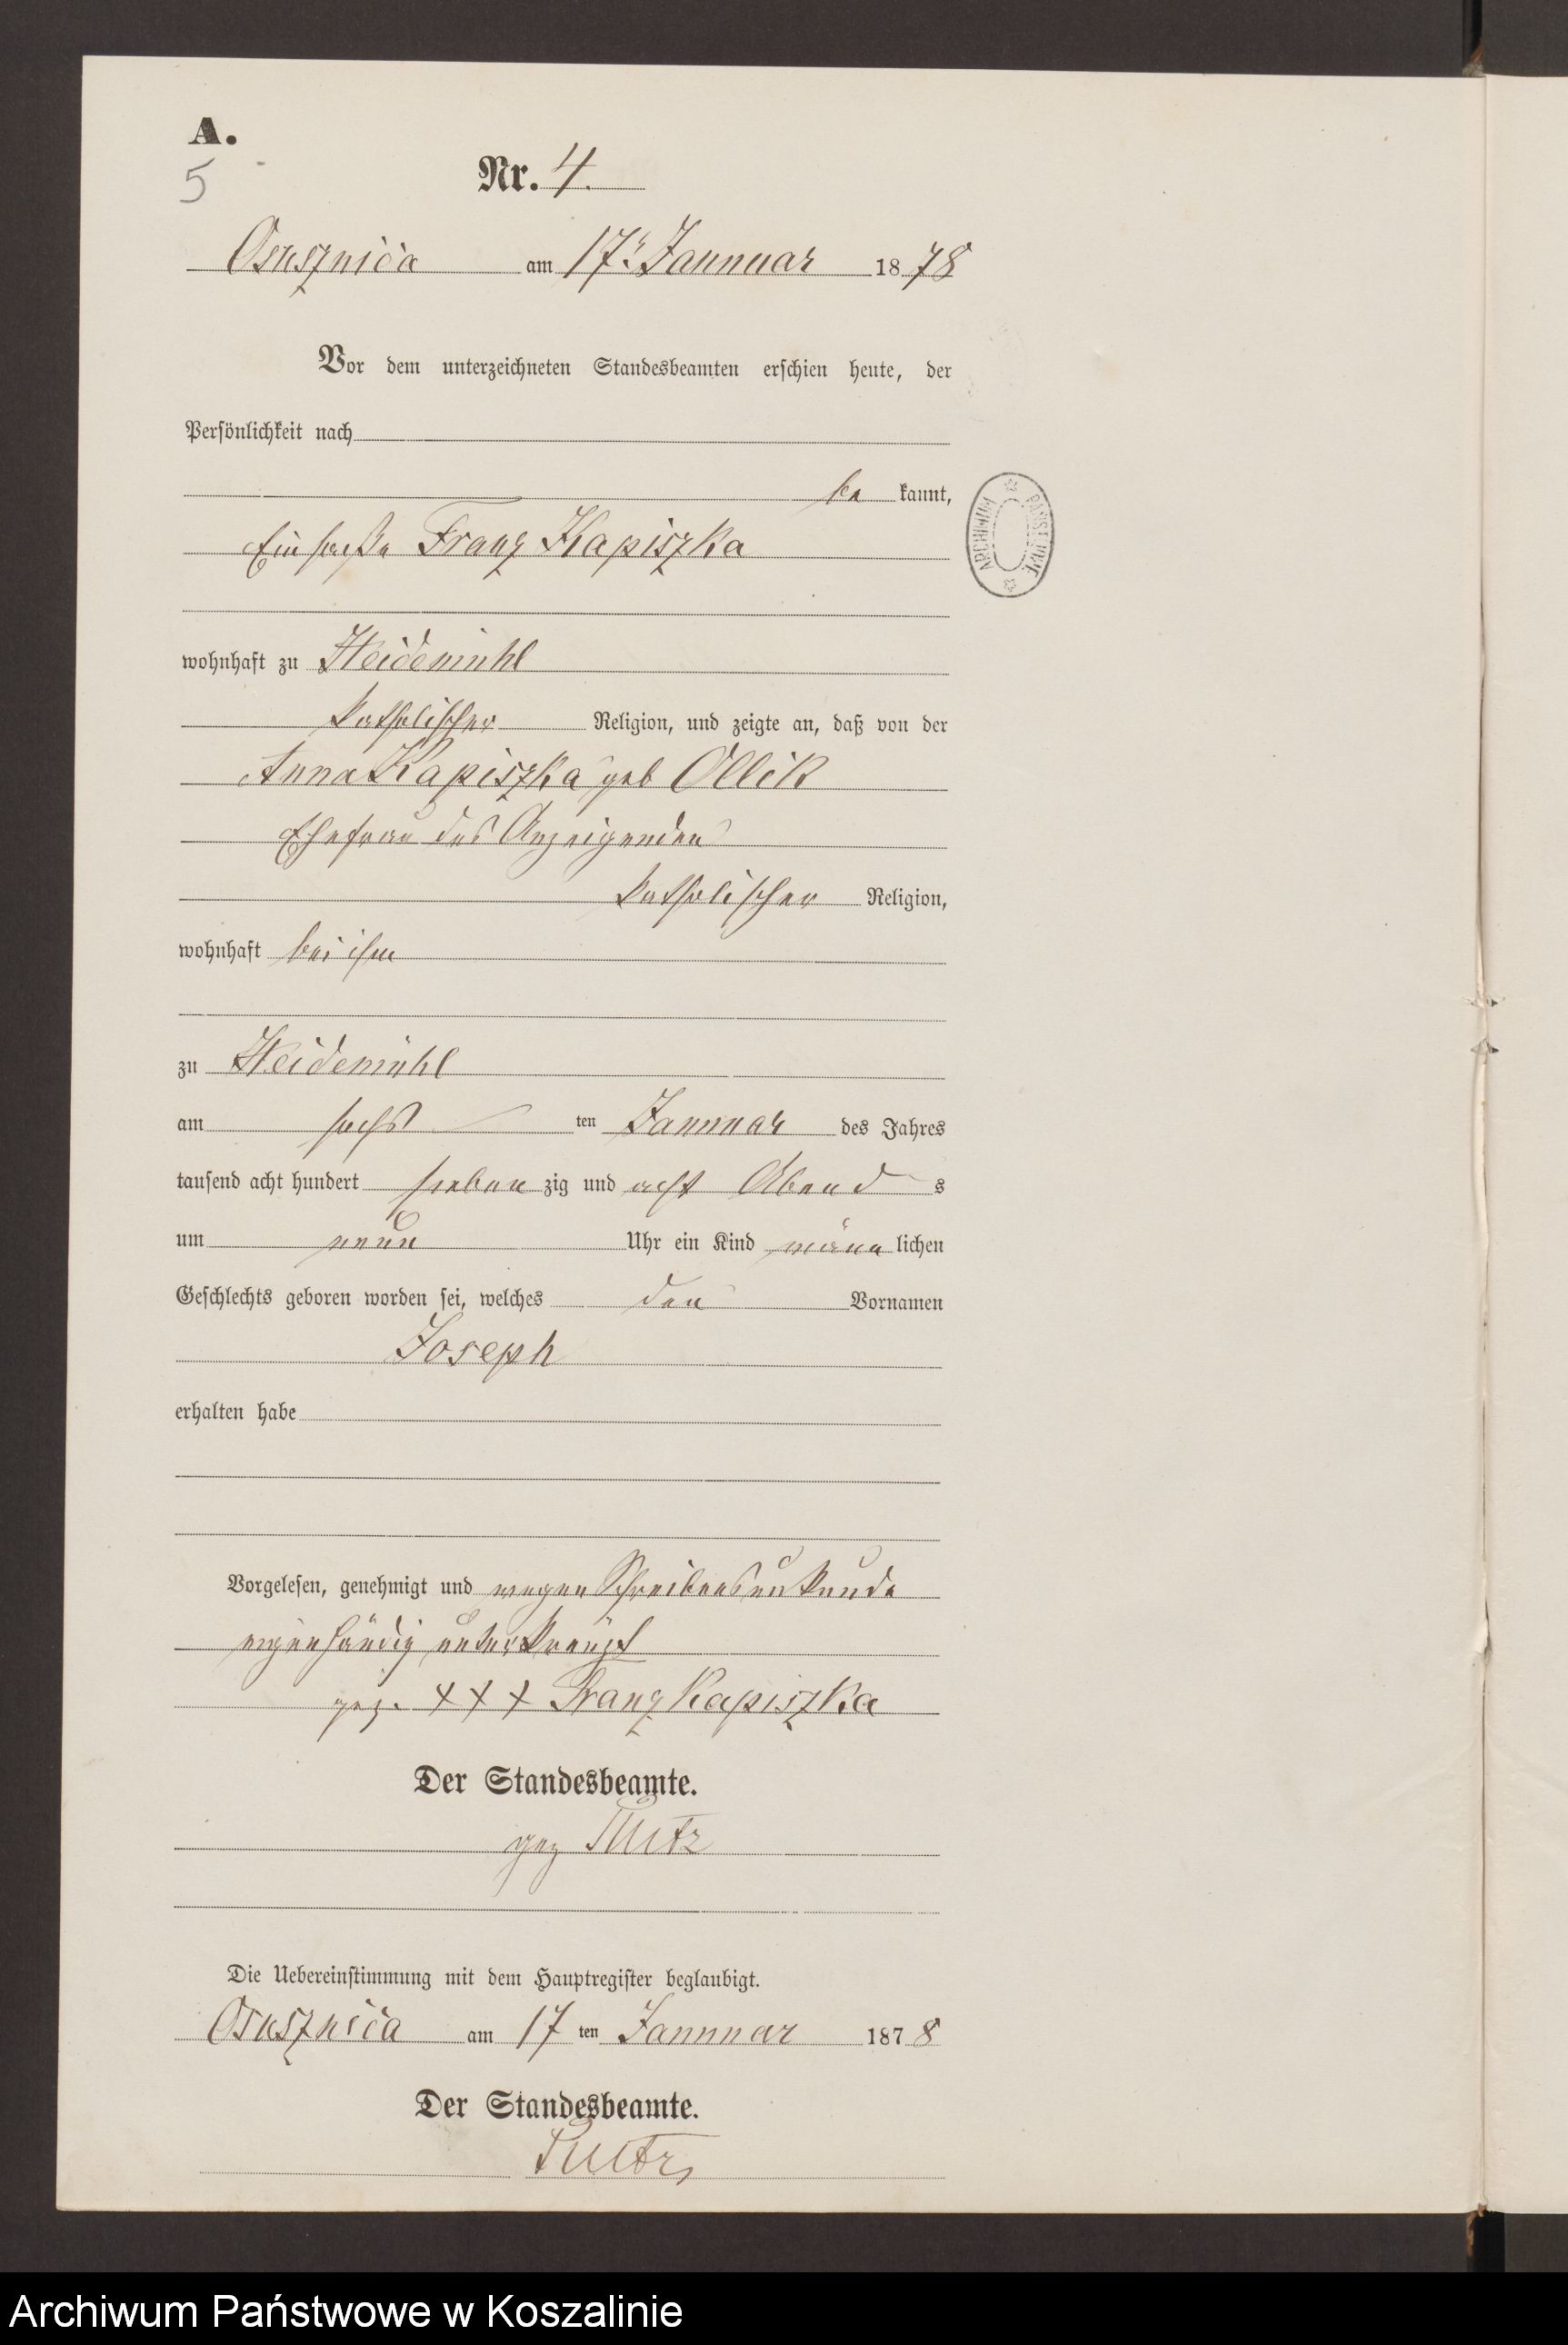 A.
5
Nr. 4.
Osusznica am 17. Jannuar 1878
Vor dem unterzeichneten Standesbeamten erschien heute, der
Persönlichkeit nach
be kannt,
Einsasse Franz Kapiszka
wohnhaft zu Heidemühl
katholischer Religion, und zeigte an, daß von der
Anna Kapiszka geb Ollik
Ehefrau des Anzeigenden
katholischer Religion,
wohnhaft bei ihm
zu Heidemühl
am sechs ten Jannuar des Jahres
tausend acht hundert sieben zig und acht Abend s
um neun Uhr ein Kind männ lichen
Geschlechts geboren worden sei, welches den Vornamen
Joseph
erhalten habe
Vorgelesen, genehmigt und wegen Schreibensunkunde
eigenhändig unterkreuzt
gez. + + + Franz Kapiszka
Der Standesbeamte.
gez
Die Uebereinstimmung mit dem Hauptregister beglaubigt.
Osusznica am 17 ten Jannuar 1878
Der Standesbeamte.
ARCHIWUM PAŃSTWOWE
Archiwum Państwowe w Koszalinie